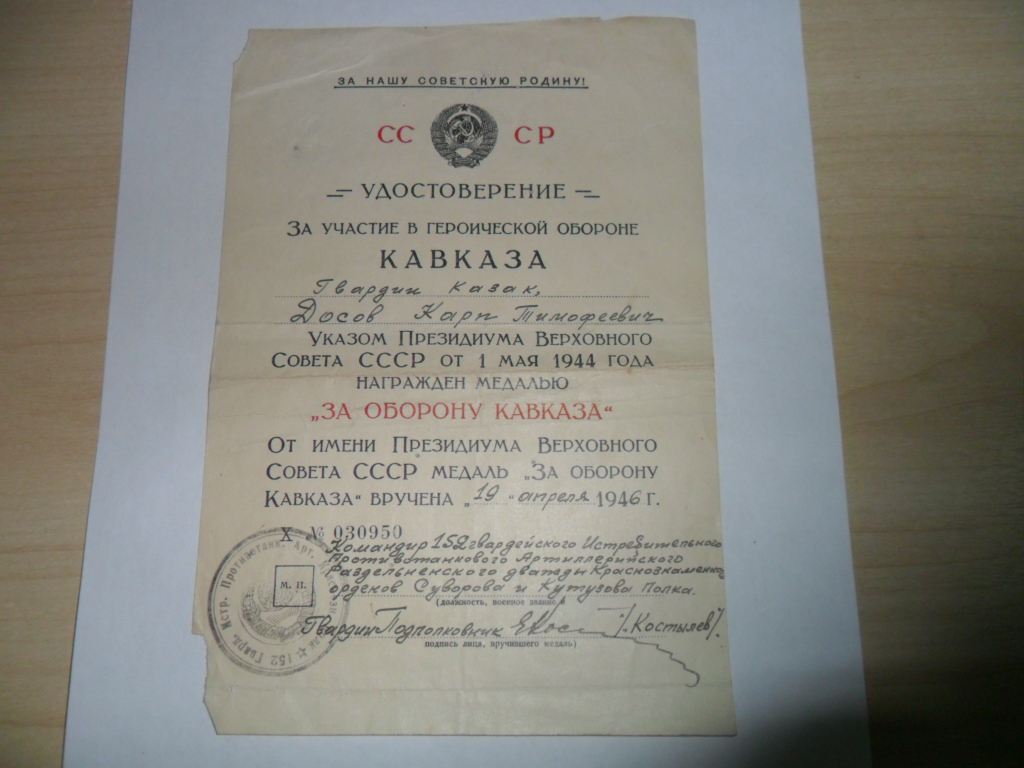 ЗА НАШУ СОВЕТСКУЮ РОДИНУ!
СС СР
УДОСТОВЕРЕНИЕ
ЗА УЧАСТИЕ В ГЕРОИЧЕСКОЙ ОБОРОНЕ
КАВКАЗА
Гвардии казак,
Досов Карп Тимофеевич
УКАЗОМ ПРЕЗИДИУМА ВЕРХОВНОГО
СОВЕТА СССР ОТ 1 МАЯ 1944 ГОДА
НАГРАЖДЕН МЕДАЛЬЮ
„ЗА ОБОРОНУ КАВКАЗА“
ОТ ИМЕНИ ПРЕЗИДИУМА ВЕРХОВНОГО
СОВЕТА СССР МЕДАЛЬ „ЗА ОБОРОНУ
КАВКАЗА“ ВРУЧЕНА „19“ апреля 1946 Г.
X № 030950
Командир 152 гвардейского Истребительного
Противотанкового Артиллерийского
Раздельненского дважды Краснознаменного
орденов Суворова и Кутузова Полка.
(должность, военное звание и
Гвардии Подполковник /Костылев/.
подпись лица, вручившего медаль)
М. П.
152 Гвард. Истр. Противотанк. Арт.